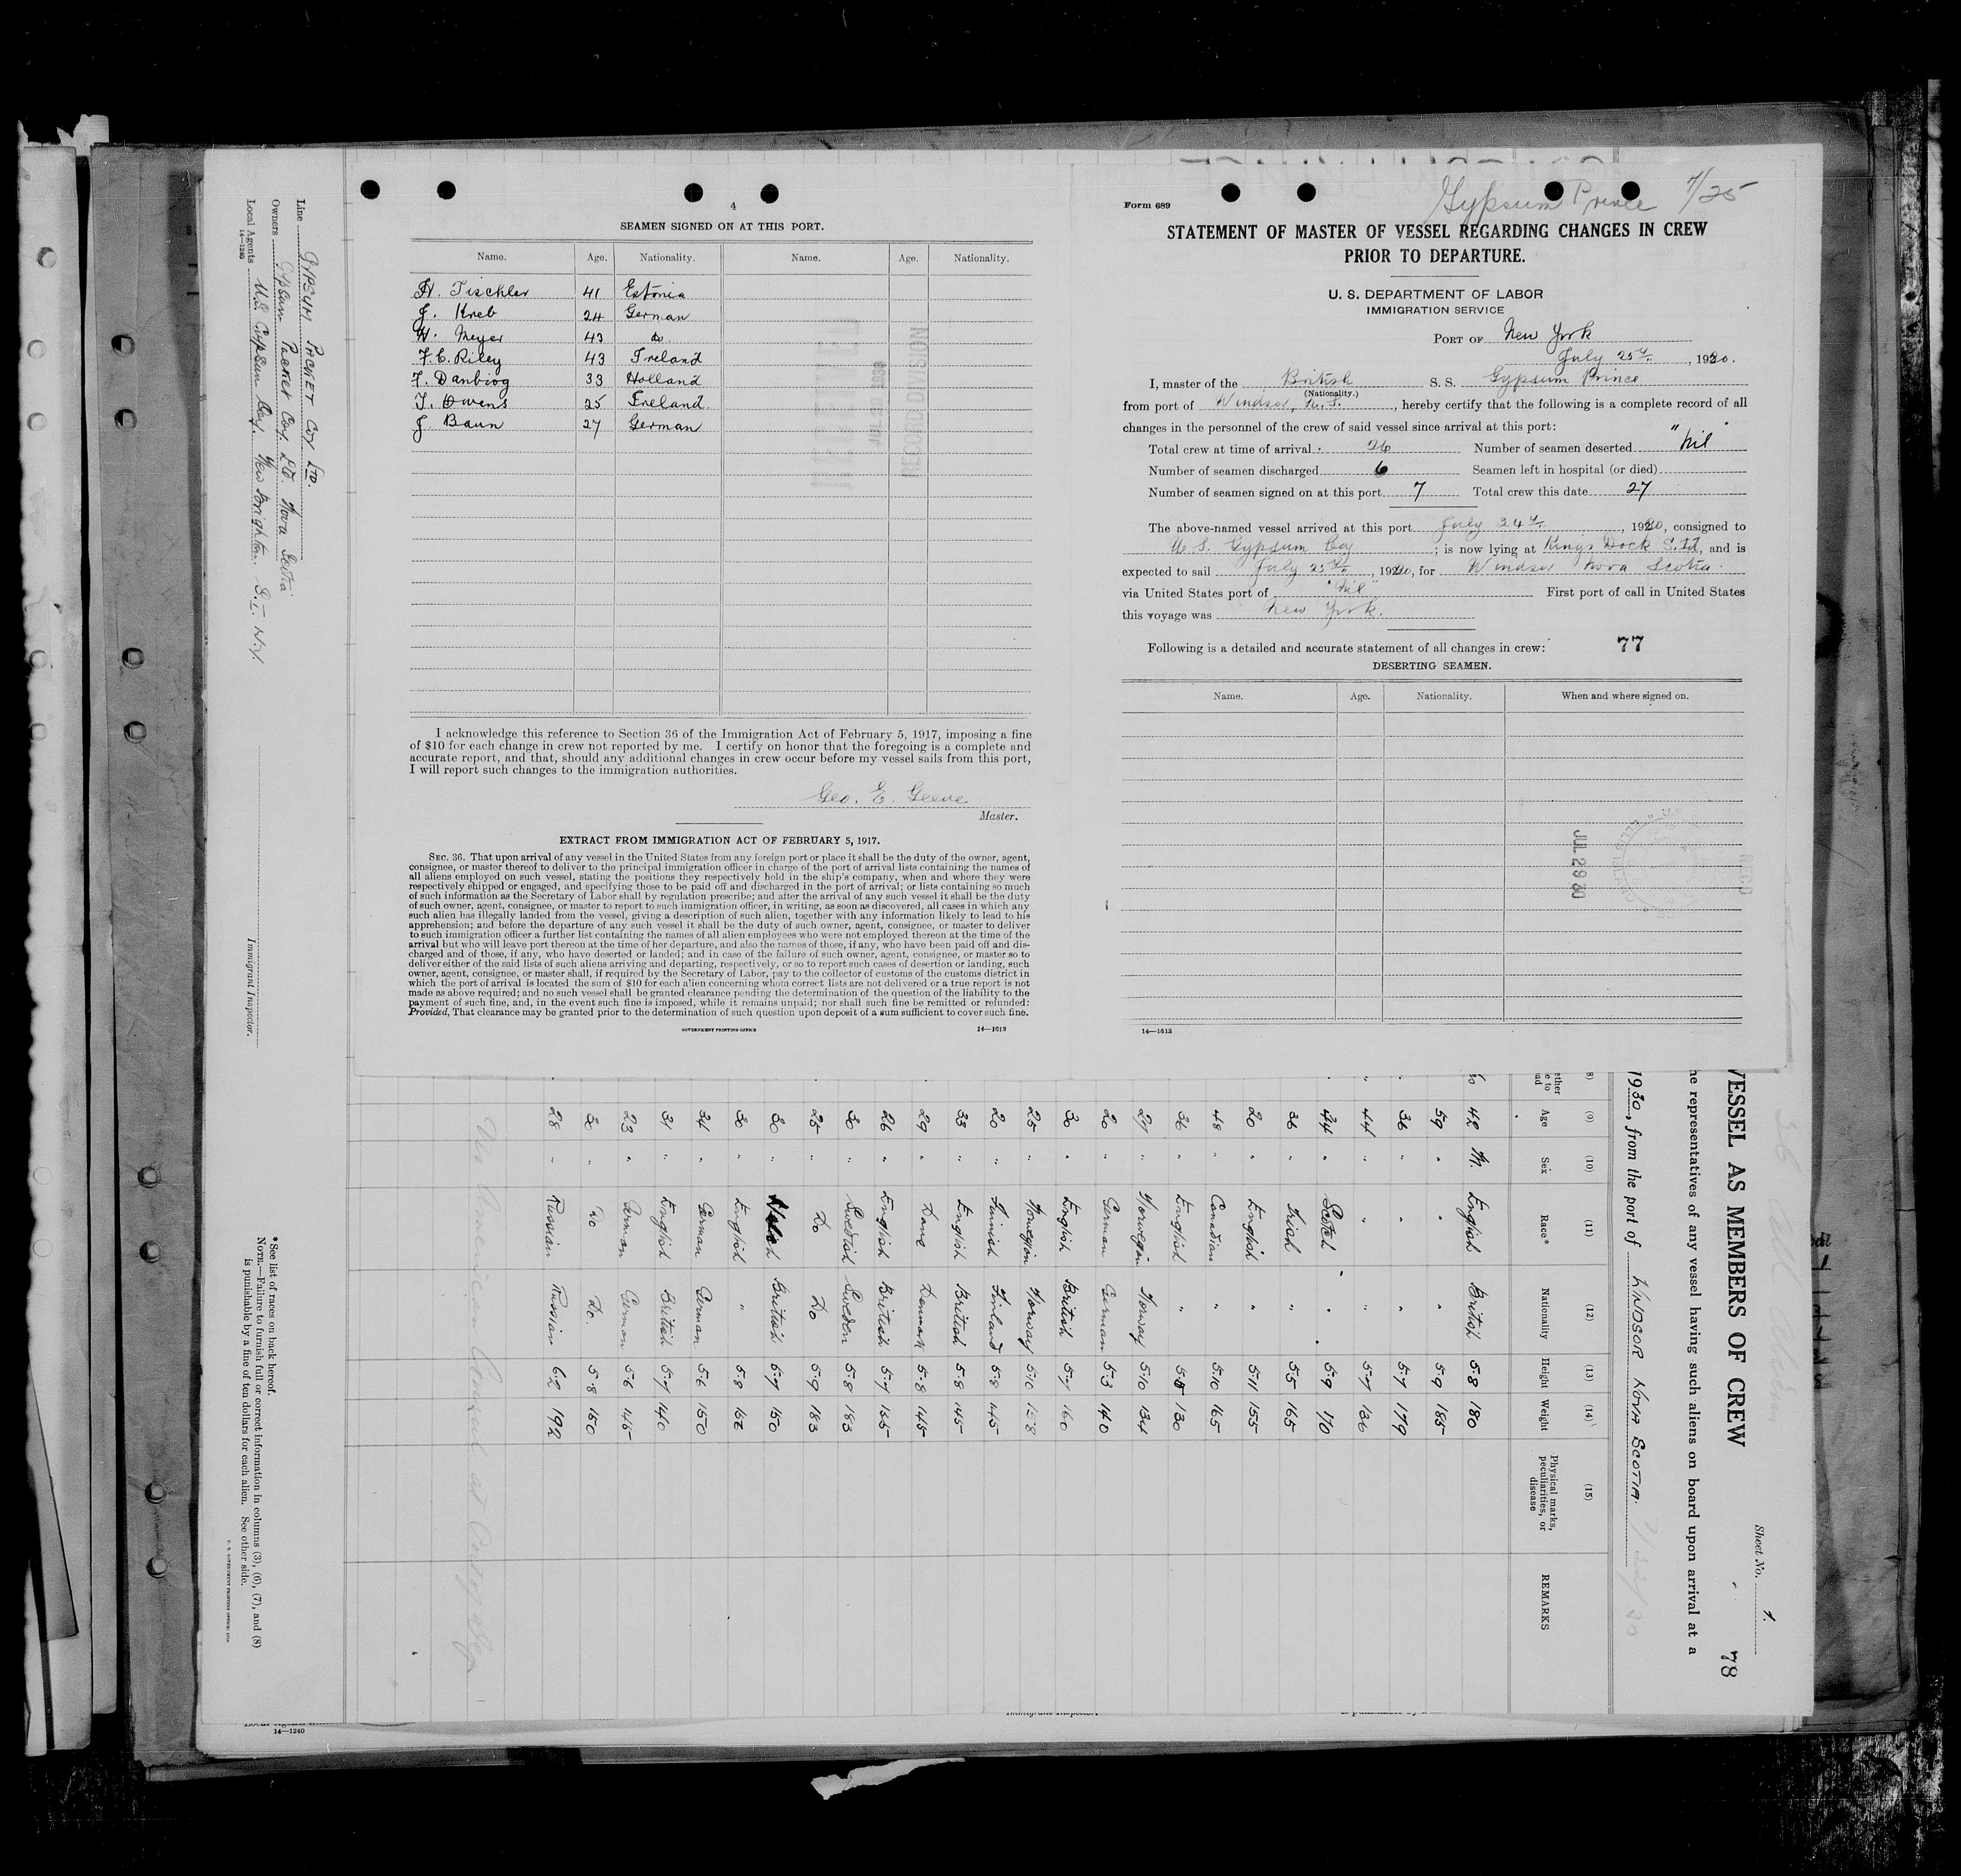 4
SEAMEN SIGNED ON AT THIS PORT.
Name. Age. Nationality. Name. Age. Nationality.
H. Tischler 41 Estonia
J. Kreb 24 German
W. Meyer 43 do.
F. C. Riley 43 Ireland
F. Danbiog 33 Holland
T. Owens 25 Ireland.
J Baun 27 German
RECORD DIVISION
I acknowledge this reference to Section 36 of the Immigration Act of February 5, 1917, imposing a fine
of $10 for each change in crew not reported by me. I certify on honor that the foregoing is a complete and
accurate report, and that, should any additional changes in crew occur before my vessel sails from this port,
I will report such changes to the immigration authorities.
Geo. E. Geeve
Master.
EXTRACT FROM IMMIGRATION ACT OF FEBRUARY 5, 1917.
SEC. 36. That upon arrival of any vessel in the United States from any foreign port or place it shall be the duty of the owner, agent,
consignee, or master thereof to deliver to the principal immigration officer in charge of the port of arrival lists containing the names of
all aliens employed on such vessel, stating the positions they respectively hold in the ship's company, when and where they were
respectively shipped or engaged, and specifying those to be paid off and discharged in the port of arrival; or lists containing so much
of such information as the Secretary of Labor shall by regulation prescribe; and after the arrival of any such vessel it shall be the duty
of such owner, agent, consignee, or master to report to such immigration officer, in writing, as soon as discovered, all cases in which any
such alien has illegally landed from the vessel, giving a description of such alien, together with any information likely to lead to his
apprehension; and before the departure of any such vessel it shall be the duty of such owner, agent, consignee, or master to deliver
to such immigration officer a further list containing the names of all alien employees who were not employed thereon at the time of the
arrival but who will leave port thereon at the time of her departure, and also the names of those, if any, who have been paid off and dis-
charged and of those, if any, who have deserted or landed; and in case of the failure of such owner, agent, consignee, or master so to
deliver either of the said lists of such aliens arriving and departing, respectively, or so to report such cases of desertion or landing, such
owner, agent, consignee, or master shall, if required by the Secretary of Labor, pay to the collector of customs of the customs district in
which the port of arrival is located the sum of $10 for each alien concerning whom correct lists are not delivered or a true report is not
made as above required; and no such vessel shall be granted clearance pending the determination of the question of the liability to the
payment of such fine, and, in the event such fine is imposed, while it remains unpaid; nor shall such fine be remitted or refunded:
Provided, That clearance may be granted prior to the determination of such question upon deposit of a sum sufficient to cover such fine.
GOVERNMENT PRINTING OFFICE 14—1613
Gypsum Prince 7/25
Form 689
STATEMENT OF MASTER OF VESSEL REGARDING CHANGES IN CREW
PRIOR TO DEPARTURE.
U. S. DEPARTMENT OF LABOR
IMMIGRATION SERVICE
PORT OF New York
July 25th, 1930.
I, master of the British S. S. Gypsum Prince
(Nationality.)
from port of Windsor, N.S., hereby certify that the following is a complete record of all
changes in the personnel of the crew of said vessel since arrival at this port:
Total crew at time of arrival 26 Number of seamen deserted "Nil"
Number of seamen discharged 6 Seamen left in hospital (or died)
Number of seamen signed on at this port 7 Total crew this date 27
The above-named vessel arrived at this port July 24th, 1930, consigned to
U. S. Gypsum Coy; is now lying at Kings Dock S.Id, and is
expected to sail July 25th, 1930, for Windsor Nova Scotia.
via United States port of "Nil" First port of call in United States
this voyage was New York.
Following is a detailed and accurate statement of all changes in crew: 77
DESERTING SEAMEN.
Name. Age. Nationality. When and where signed on.
JUL 29 30
14—1613
VESSEL AS MEMBERS OF CREW
Sheet No. 1.
78
he representatives of any vessel having such aliens on board upon arrival at a
1930, from the port of WINDSOR NOVA SCOTIA.
(9) (10) (11) (12) (13) (14) (15)
Age Sex Race* Nationality Height Weight Physical marks, peculiarities, or disease REMARKS
42 M. English British 5-8 180
59 " " " 5-9 185
36 " " " 5-7 179
44 " " " 5-7 136
34 " Scotch " 5-9 170
36 " Irish " 5-5 165
20 " English " 5-11 155
48 " Canadian " 5-10 165
36 " English " 130
27 " Norwegian Norway 5-10 134
20 " German German 5-3 140
30 " English British 5-7 160
25 " Norwegian Norway 5-10 158
20 " Finnish Finland 5-8 145
33 " English British 5-8 145
29 " Dane Denmark 5-8 145
26 " English British 5-7 155
30 " Swedish Sweden 5-8 183
25 " Do Do 5-9 183
30 " British 5-7 150
30 " English " 5-8
34 " German German 5-6 150
31 " English British 5-7 140
23 " German German 5-6 145
30 " Do Do. 5-8 150
28 " Russian Russian 6-2 192
No American Consul at
Line GYPSUM PACKET COY LTD.
Owners Gypsum Packet Coy. Ld. Nova Scotia
Local Agents U.S. Gypsum Coy. New Brighton. S.I. N.Y.
14—1240
Immigrant Inspector.
*See list of races on back hereof.
NOTE.—Failure to furnish full or correct information in columns (3), (6), (7), and (8)
is punishable by a fine of ten dollars for each alien. See other side.
14—1240